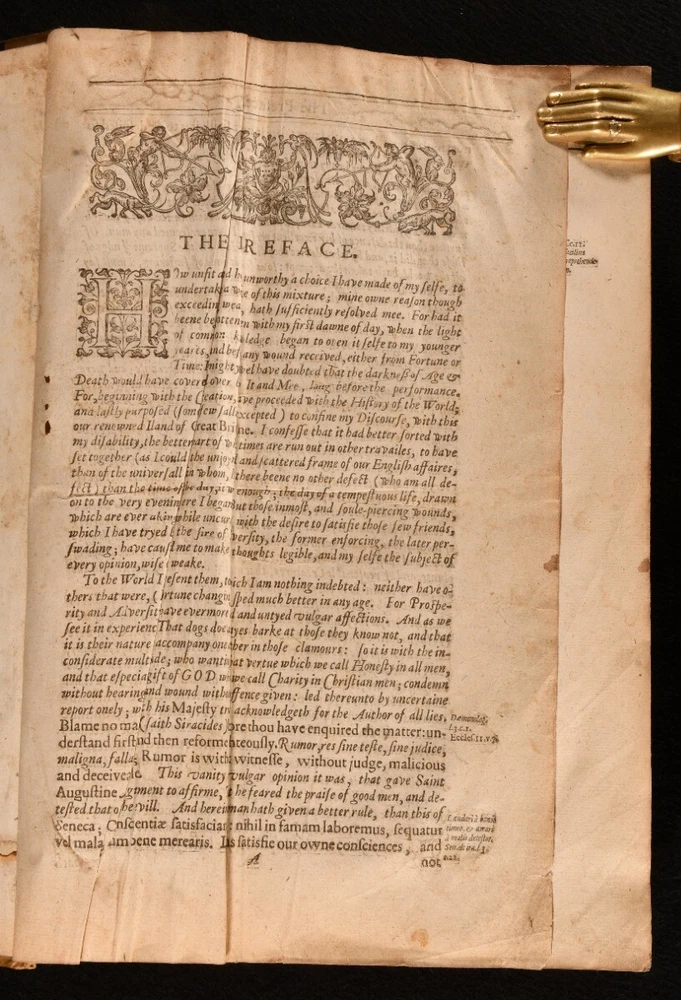 THE REFACE.
HOw unfit ad h unworthy a choice I have made of my selfe, to
undertak a of this mixture; mine owne reason though
exceedin wea, hath sufficiently resolved mee. For had it
beene begotten with my first dawne of day, when the light
of common kledge began to open it selfe to my younger
yeares, and bef any wound received, either from Fortune or
Time: I might wel have doubted that the darknesse of Age &
Death would have covered over It and Mee, long before the performance.
For, beginning with the Creation, ive proceeded with the History of the World;
and lastly purposed (some few sall excepted) to confine my Discourse, with this
our renowned Iland of Great Bri ne. I confesse that it had better sorted with
my disability, the better part of w times are run out in other travailes, to have
set together (as I could the unjoy and scattered frame of our English affaires,
than of the universall in whom, there beene no other defect (who am all de-
fect) than the time of the day, it w enough; the day of a tempestuous life, drawn
on to the very evenin ere I began ut those inmost, and soule-piercing wounds,
which are ever akin while uncur with the desire to satisfie those few friends,
which I have tryed the fire of versity, the former enforcing, the later per-
swading; have caust me to make thoughts legible, and my selfe the subject of
every opinion, wise weake.
To the World I esent them, to ich I am nothing indebted: neither have o-
thers that were, (rtune changi sped much better in any age. For Prospe-
rity and Adversit ave evermore and untyed vulgar affections. And as we
see it in experienc That dogs doe ayes barke at those they know not, and that
it is their nature accompany one ther in those clamours: so it is with the in-
considerate mult de; who wanti at vertue which we call Honesty in all men,
and that especia gift of GOD w we call Charity in Christian men; condemn
without hearing nd wound with ffence given: led thereunto by uncertaine
report onely; w h his Majesty tr acknowledgeth for the Author of all lies.
Blame no ma (saith Siracides) ore thou have enquired the matter: un-
derstand first nd then reforme hteously. Rumor, res sine teste, sine judice,
maligna, falla; Rumor is with witnesse, without judge, malicious
and deceiveable. This vanity vulgar opinion it was, that gave Saint
Augustine gument to affirme, t he feared the praise of good men, and de-
tested that o he evill. And herein man hath given a better rule, than this of
Seneca; Conscientiæ satisfacia nihil in famam laboremus, sequatur
vel mala, um bene merearis. L s satisfie our owne consciences, and
A
not
Eccles. 11. v. 7.